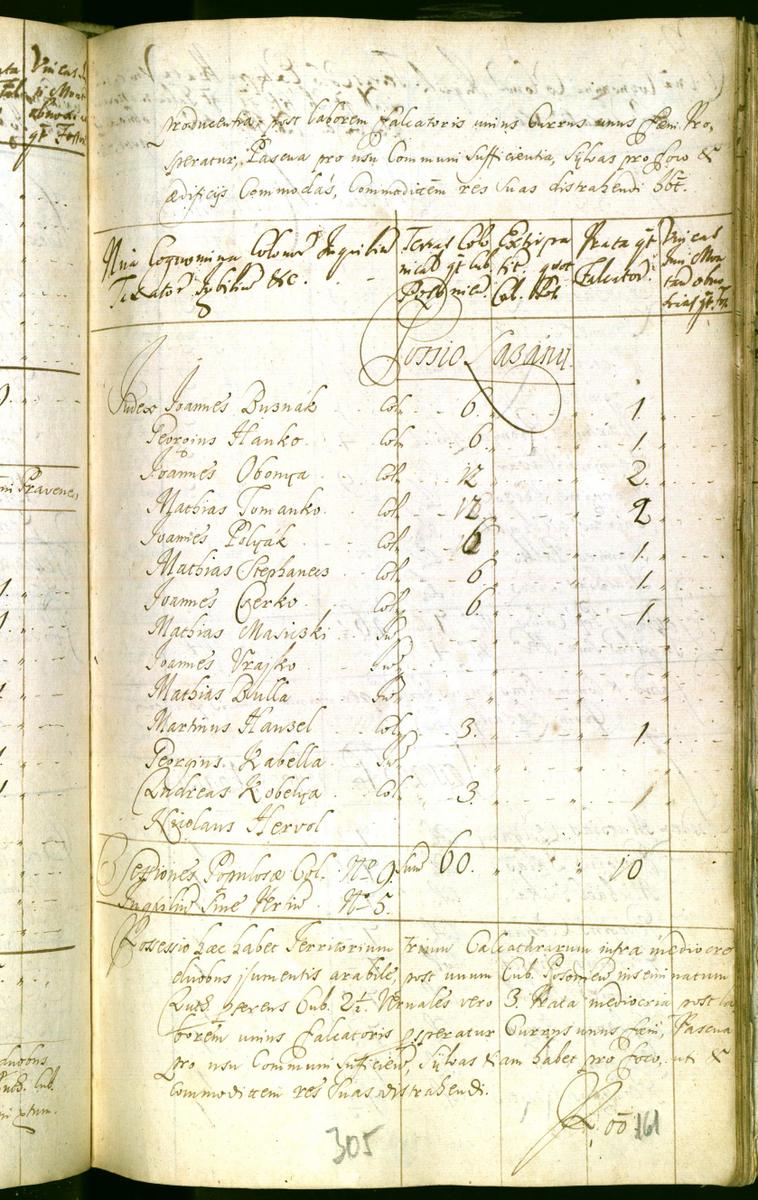 producentia, post laborem falcatoris unius Currus unus fæni Pro,
speratur, Pascua pro usu Communi sufficientia, Sylvas pro foco &
ædificijs Commodas, Commoditem res suas distrahendi hbt.
Nña Cognomina Colonor Inquilin
Taxator Sybiliu &c.
Terras Colo
nical qt Cub
Poson. nicd.
Extirpa
tit. quot
Cub. Pos.
Prata qt
Falcator.
Vineas
sui Mon
tan
qt. fos.
Possio Lazány
Judex Joannes Busnák Col. 6. 1.
Georgius Hanko Col. 6. 1.
Joannes Obonya Col. 12 2.
Mathias Tomanko Col. 12 2
Joannes Polyák Col. 6 1.
Mathias Stephanecs Col. 6 1.
Joannes Cserko Col. 6 1.
Mathias Masiezki Inq
Joannes Vrajko Inq
Mathias Bulla Inq
Martinus Hanzel Col. 3. 1
Georgius Kabella Inq
Andreas Kobelya Col. 3. 1
Nicolaus Hervol
Sessiones Populosæ Col. No 9. Sum 60. 10
Inquilin sine No 5.
Possessio hæc habet Territorium trium Calcaturarum intra mediocre
duobus jumentis arabile, post unum Cub. Posonien inseminatum
Cub. 2½. Vernales vero 3. Prata mediocria post la
borem unius falcatoris speratur Currus unus fæni, Pascua
pro usu Communi sufficien, Sylvas etiam habet pro foco, ut &
Commoditem res suas distrahendi.
161
305